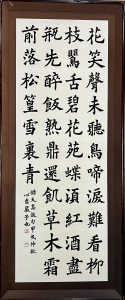 花笑聲未聽鳥啼淚難看柳
枝鸎舌碧花苑蝶滇紅酒盡
瓶先醉飯熟鼎還飢草木霜
前落松篁雪裏青